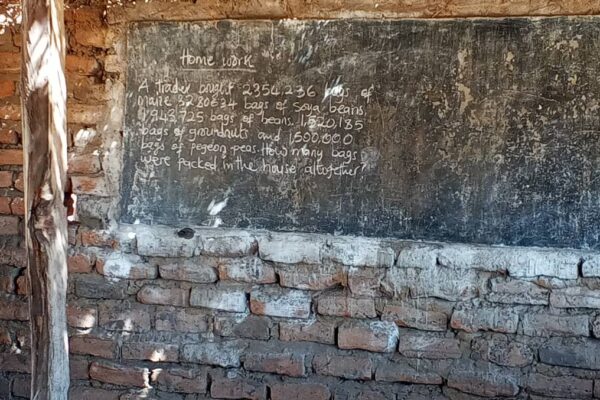 Home work
A Trader bought 2354,236 bags of
maize 3280634 bags of Soya beans,
1,943,725 bags of beans. 1,520,185
bags of groundnuts and 1,500,000
bags of pegeon peas. How many bags
were packed in the house altogether?